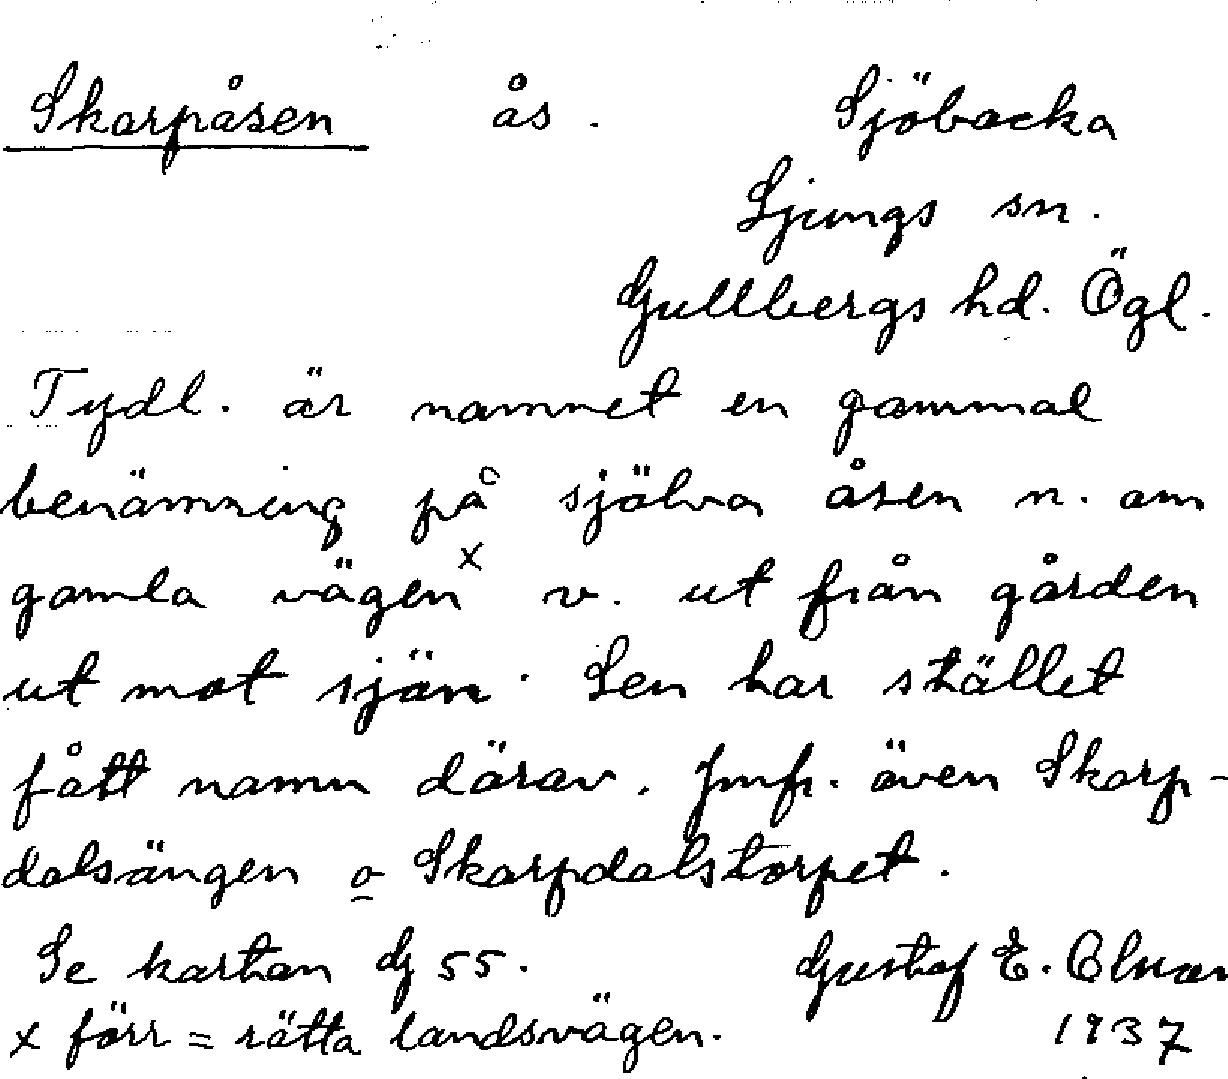 Skarpåsen ås. Sjöbacka
Ljungs sn.
Gullbergs hd. Ögl.
Tydl. är namnet en gammal
benämning på själva åsen n. om
gamla vägen x v. ut från gården
ut mot sjön. Sen har stället
fått namn därav. Jmfr. även Skarp-
dalsängen o Skarpdalstorpet.
Se kartan G 55. Gustaf E.
x förr = rätta landsvägen. 1937